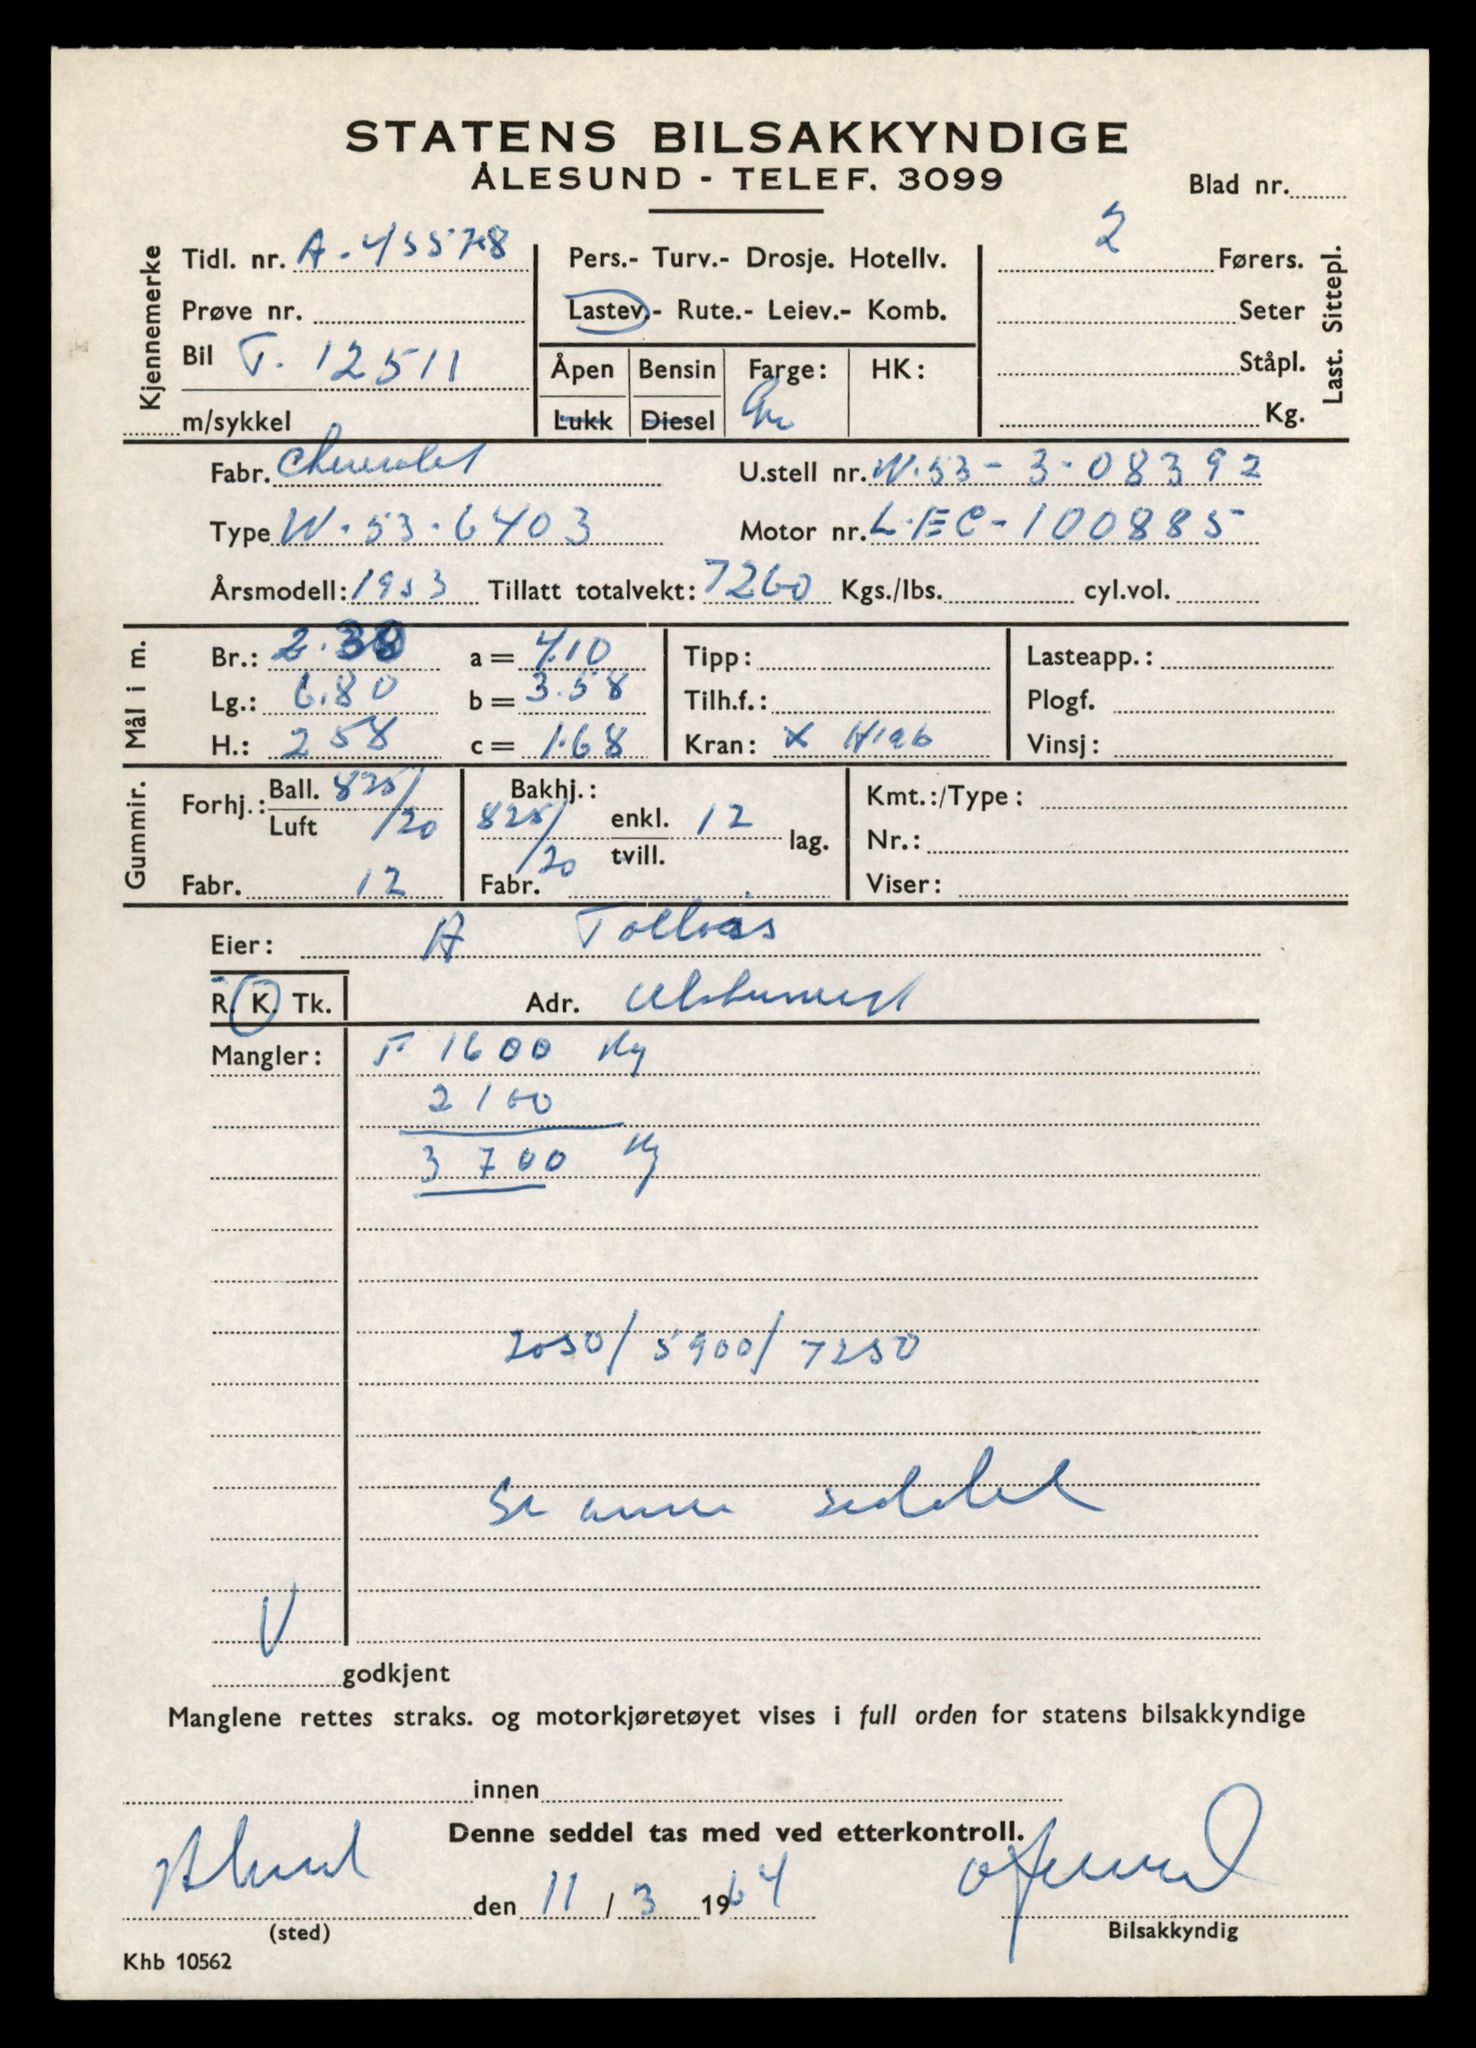 STATENS BILSAKKYNDIGE
ÅLESUND - TELEF. 3099
Blad nr.
Kjennemerke
Tidl. nr. A-45578
Prøve nr.
Bil T. 12511
m/sykkel
Pers.- Turv.- Drosje. Hotellv.
Lastev.- Rute.- Leiev.- Komb.
Åpen Bensin Farge: HK:
Lukk Diesel
Last. Sittepl.
2 Førers.
Seter
Ståpl.
Kg.
Fabr. Chevrolet U.stell nr. W.53-3-08392
Type W.53.6403 Motor nr. L.EC-100885
Årsmodell: 1953 Tillatt totalvekt: 7260 Kgs./lbs. cyl.vol.
Mål i m.
Br.: 2.30 a = 4.10 Tipp: Lasteapp.:
Lg.: 6.80 b = 3.58 Tilh.f.: Plogf.
H.: 258 c = 1.68 Kran: x Hiab Vinsj:
Gummir.
Forhj.: Ball. 825/20 Luft
Fabr. 12
Bakhj.: 825/20 enkl. 12 tvill. lag.
Fabr.
Kmt.:/Type:
Nr.:
Viser:
Eier: A
R. K. Tk. Adr.
Mangler: F 1600 Kg
2100
3700 Kg
2050/5900/7250
Se annen seddel
V
godkjent
Manglene rettes straks. og motorkjøretøyet vises i full orden for statens bilsakkyndige
innen
Denne seddel tas med ved etterkontroll.
Ålesund den 11/3 1964
(sted) Bilsakkyndig
Khb 10562